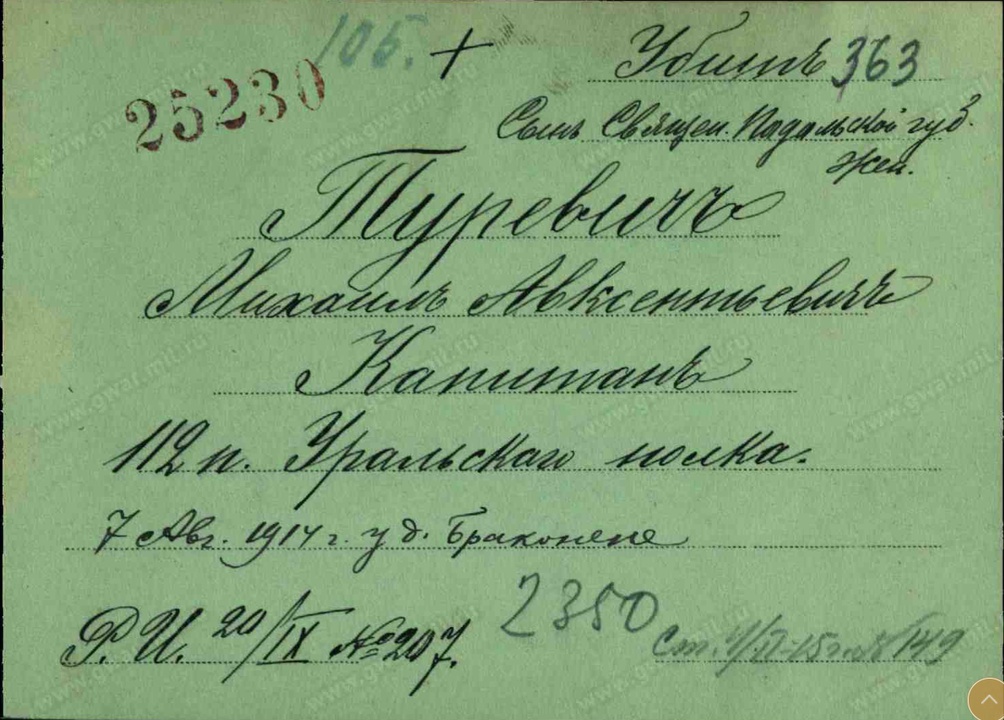 25230
105. +
Убитъ 363
Сынъ Священ. Подольской губ.
жен.
Туревичъ
Михаилъ Авксентьевичъ
Капитанъ
112 п. Уральскаго полка.
7 Авг. 1914 г. у д. Браконене
Р. И. 20/IX № 207.
2350
www.gwar.mil.ru